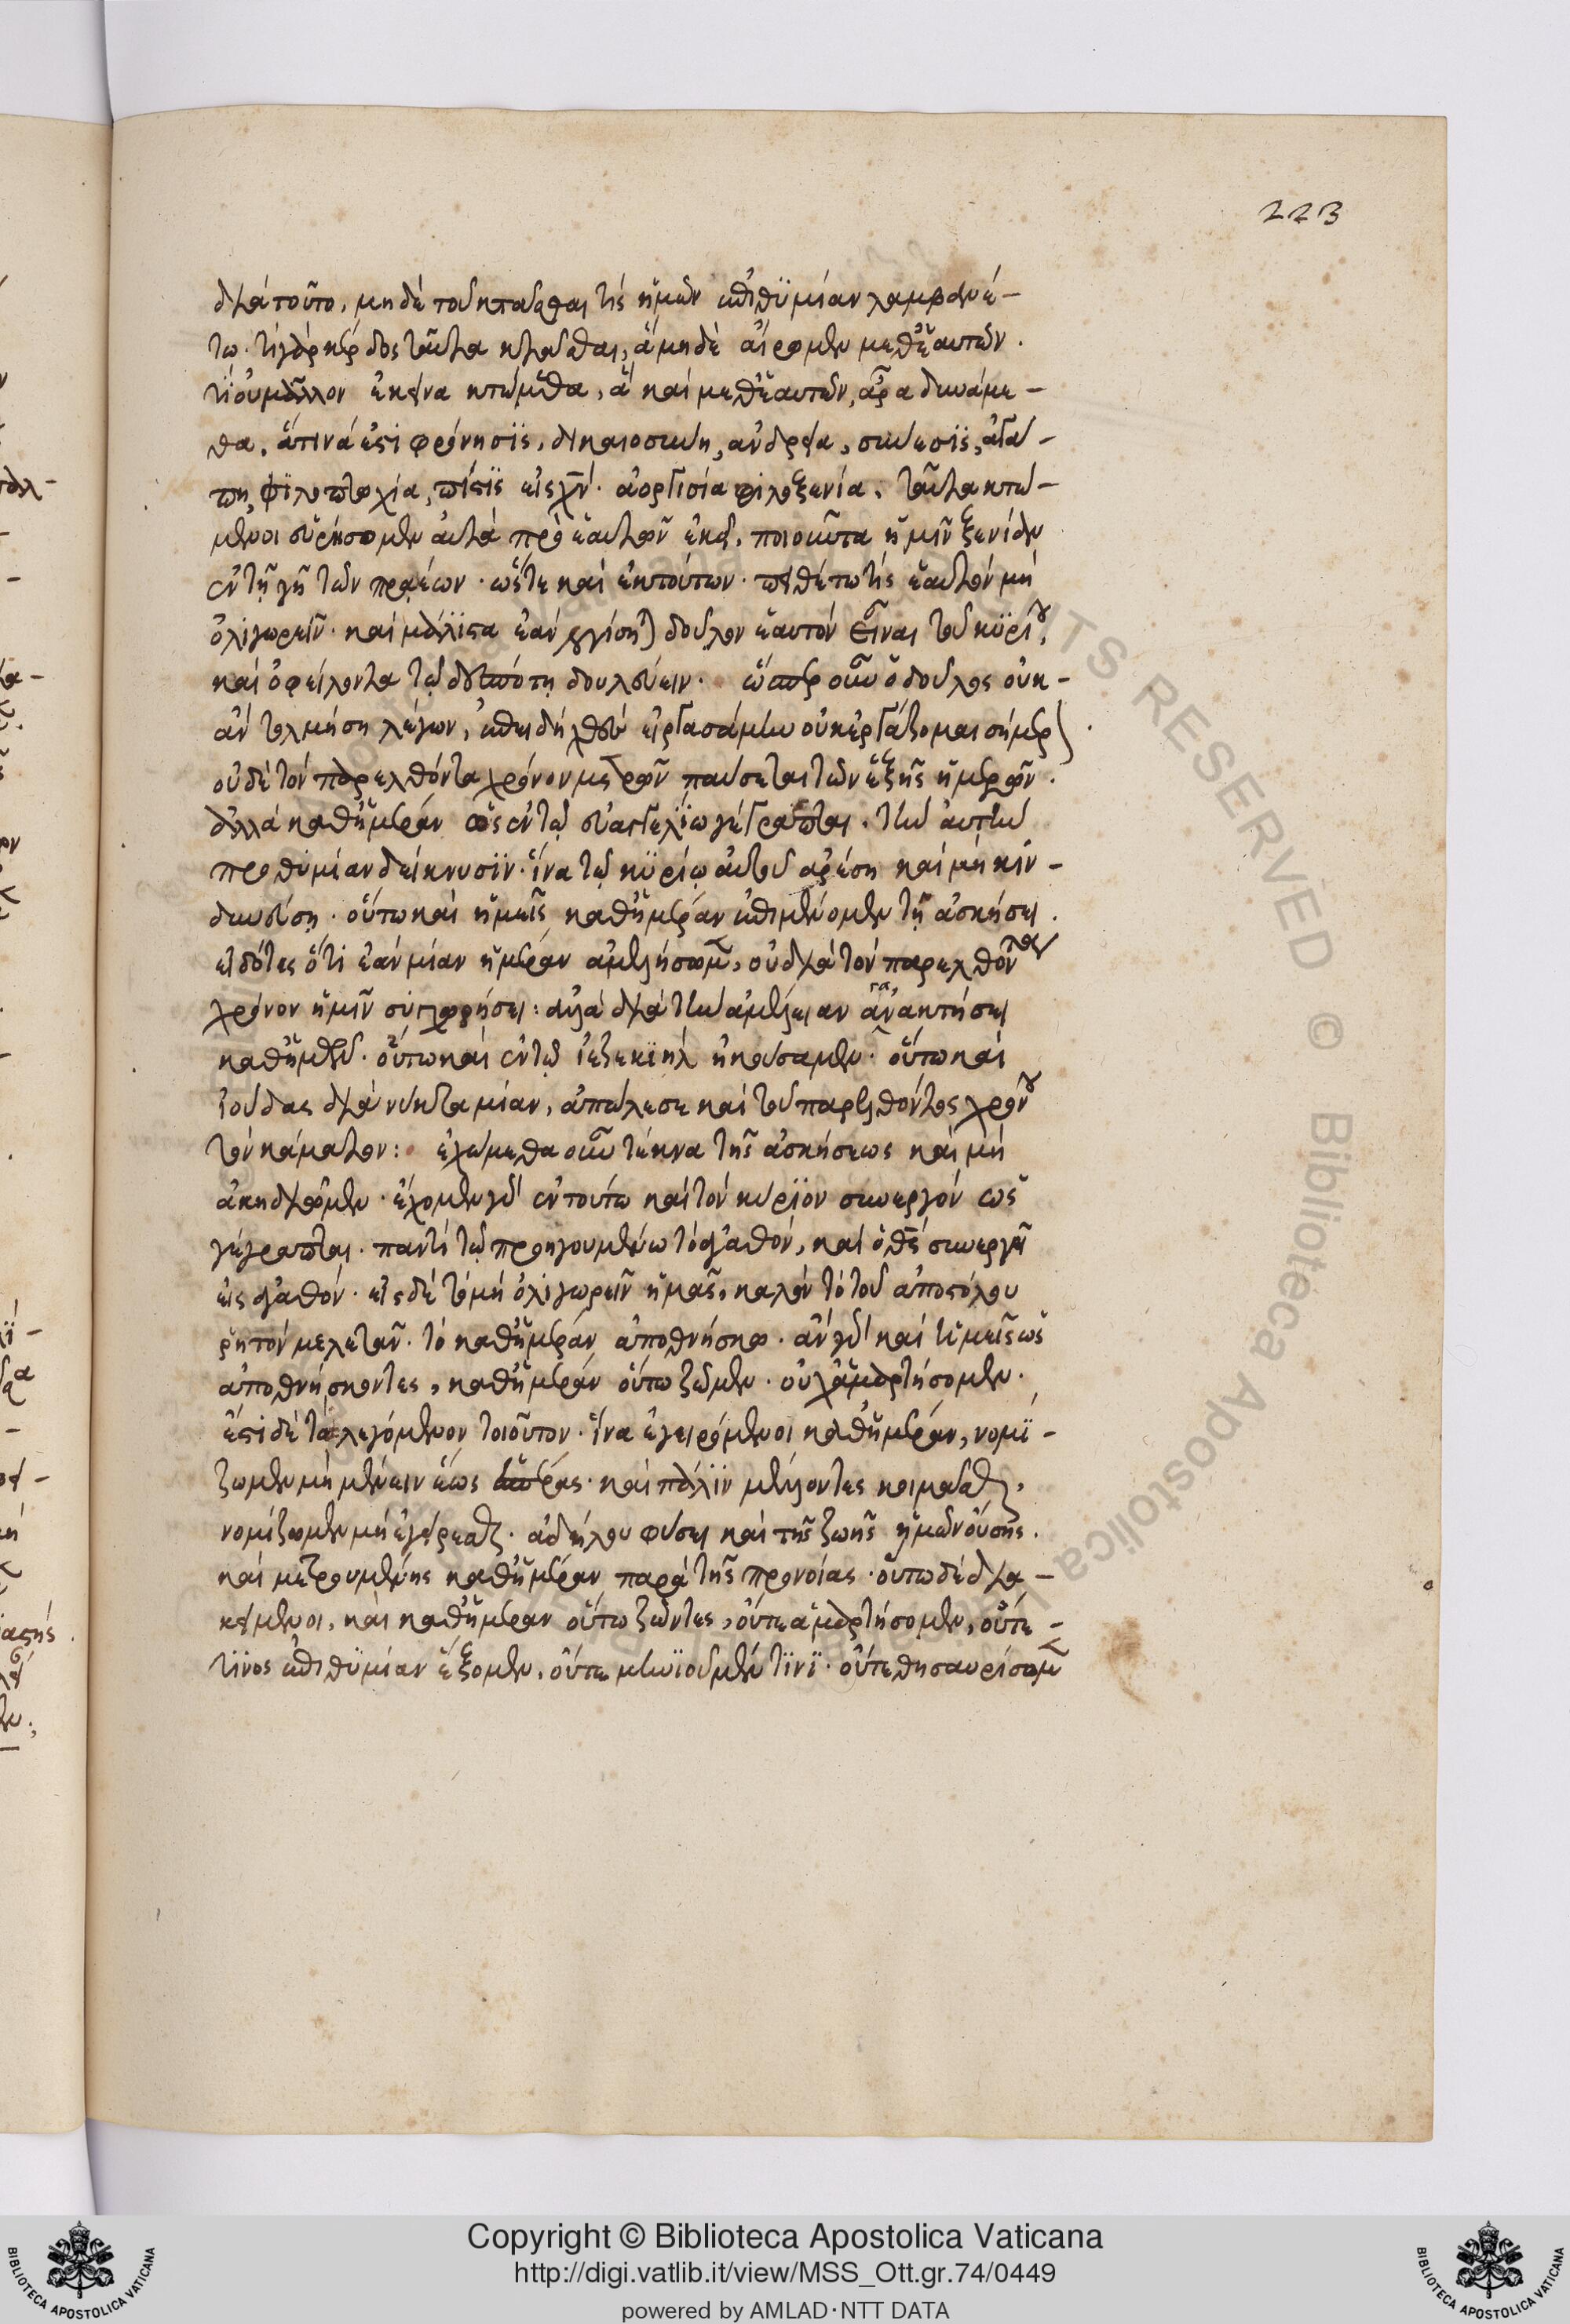 223
διὰ τοῦτο, μηδὲ τοῦ κτᾶσθαι τίς ἡμῶν ἐπιθϋμίαν λαμβανέ-
τω· τί γὰρ κέρδος ταῦτα κτᾶσθαι, ἃ μηδὲ αἴρομεν μεθ' ἑαυτῶν·
τί οὐ μᾶλλον ἐκεῖνα κτώμεθα, ἃ καὶ μεθ' ἑαυτῶν ἆραι δυνάμε-
θα, ἅτινά ἐστι φρόνησϊς, δικαιοσύνη, ἀνδρεία, σύνεσϊς, ἀγά-
πη, φϊλοπτωχία, πίστϊς εἰς χ̅ν̅· ἀοργισία φιλοξενία. ταῦτα κτώ-
μενοι εὑρήσομεν αὐτὰ πρὸ ἑαυτῶν ἐκεῖ, ποιοῦντα ἡμῖν ξενίαν
ἐν τῇ γῇ τῶν πραέων· ὥστε καὶ ἐκ τούτων· πειθέτω τίς ἑαυτὸν μὴ
ὀλιγωρεῖν· καὶ μάλϊστα ἐὰν λογίσηται δοῦλον ἑαυτὸν εἶναι τοῦ κϋρίου,
καὶ ὀφείλοντα τῷ δεσπότῃ δουλεύειν· ὥσπερ οὖν ὁ δοῦλος οὐκ-
ἂν τολμήση λέγων, ἐπειδὴ χθὲς εἰργασάμην οὐκ ἐργάζομαι σήμερον·
οὐδὲ τὸν παρελθόντα χρόνον μετρῶν παύσεται τῶν ἑξῆς ἡμερῶν·
ἀλλὰ καθ' ἡμέραν ὡς ἐν τῷ εὐαγγελϊω γέγραπται. τὴν αὐτὴν
προθϋμίαν δείκνυσϊν· ἵνα τῷ κϋρίῳ αὐτοῦ ἀρέση καὶ μὴ κϊν-
δυνεύσῃ· οὕτω καὶ ἡμεῖς καθ' ἡμέραν ἐπιμένομεν τῇ ἀσκήσει·
εἰδότες ὅτι ἐὰν μίαν ἡμέραν ἀμελήσωμεν, οὐ διὰ τὸν παρελθόντα
χρόνον ἡμῖν συγχωρήσει· ἀλλὰ διὰ τὴν ἀμέλειαν ἀγανακτήσει
καθ' ἡμῶν· οὕτω καὶ ἐν τῷ ἰεζεκϊὴλ ἠκούσαμεν· οὕτω καὶ
ἰούδας διὰ νύκτα μίαν, ἀπώλεσε καὶ τοῦ παρελθόντος χρόνου
τὸν κάματον: ἐχώμεθα οὖν τέκνα τῆς ἀσκήσεως καὶ μὴ
ἀκηδιῶμεν· ἔχομεν γὰρ ἐν τούτω καὶ τὸν κυρϊον συνεργὸν ὡς
γέγραπται· παντὶ τῷ προηγουμένω τὸ ἀγαθόν, καὶ ὁ θ̅ς̅ συνεργεῖ
εἰς ἀγαθόν· εἰς δὲ τὸ μὴ ὀλιγωρεῖν ἡμᾶς, καλὸν τὸ τοῦ ἀποστόλου
ῥητὸν μελετᾶν· τὸ καθ' ἡμέραν ἀποθνήσκω· ἂν γὰρ καὶ ἡμεῖς ὡς
ἀποθνήσκοντες, καθ' ἡμέραν οὕτω ζῶμεν· οὐχ ἁμαρτήσομεν·
ἔστι δὲ τὸ λεγόμενον τοιοῦτον· ἵνα ἐγειρόμενοι καθ' ἡμέραν, νομϊ-
ζωμεν μὴ μένειν ἕως ἑσπέρας· καὶ πάλϊν μέλλοντες κοιμᾶσθαι,
νομίζωμεν μὴ ἐγείρεσθαι· ἀδήλου φύσει καὶ τῆς ζωῆς ἡμῶν οὔσης·
καὶ μετρουμένης καθ' ἡμέραν παρὰ τῆς προνοίας· οὕτω δὲ δια-
κείμενοι, καὶ καθ' ἡμέραν οὕτω ζῶντες, οὔτε ἁμαρτήσομεν, οὔτε-
τϊνος ἐπιθϋμίαν ἕξομεν, οὔτε μηνϊοῦμέν τϊνϊ· οὔτε θησαυρίσομεν
Copyright © Biblioteca Apostolica Vaticana
http://digi.vatlib.it/view/MSS_Ott.gr.74/0449
powered by AMLAD·NTT DATA